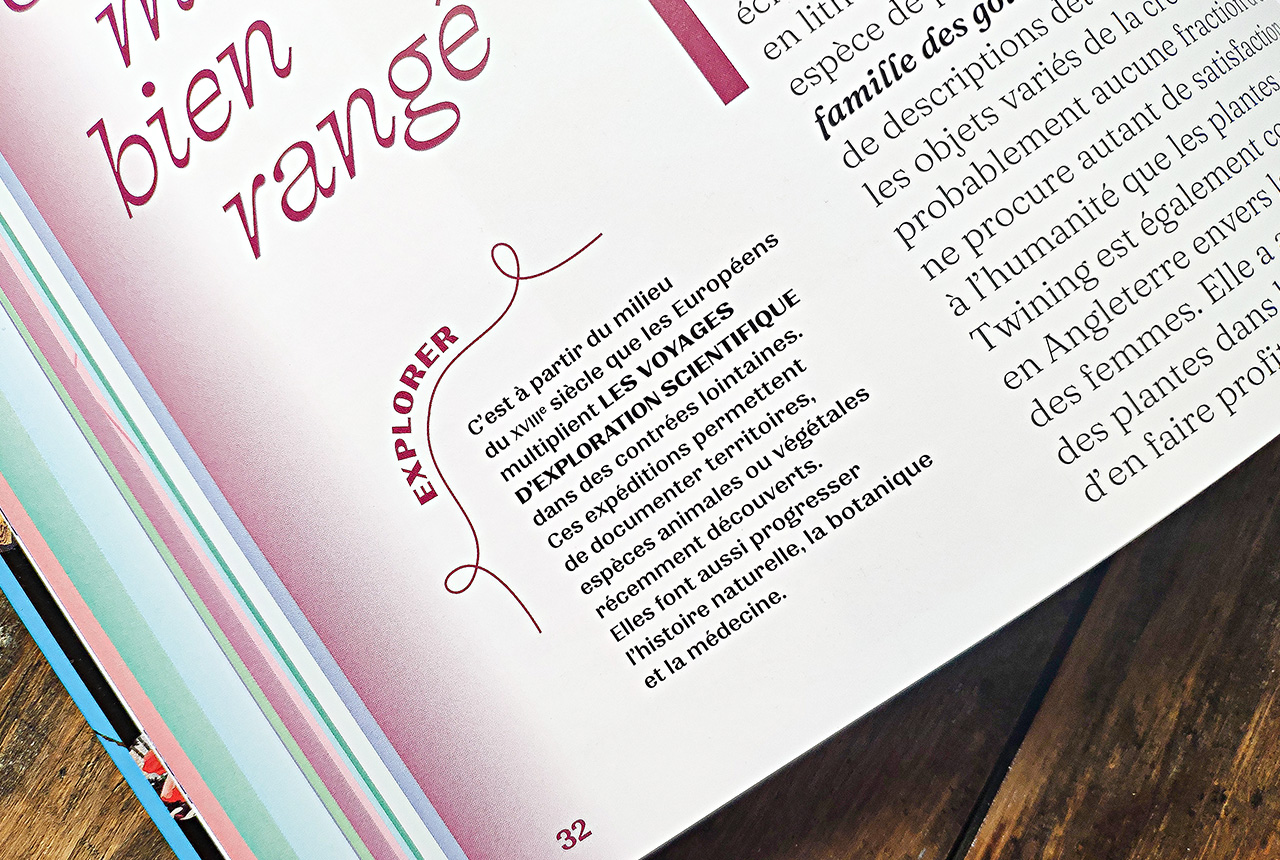 bien
rangé
EXPLORER
C'est à partir du milieu
du XVIIIe siècle que les Européens
multiplient LES VOYAGES
D'EXPLORATION SCIENTIFIQUE
dans des contrées lointaines.
Ces expéditions permettent
de documenter territoires,
espèces animales ou végétales
récemment découverts.
Elles font aussi progresser
l'histoire naturelle, la botanique
et la médecine.
32
en lith
espèce de
famille des
de descriptions
les objets variés de la
probablement aucune
ne procure autant de satisfaction
à l'humanité que les plantes
Twining est également
en Angleterre envers
des femmes. Elle a
des plantes dans
d'en faire